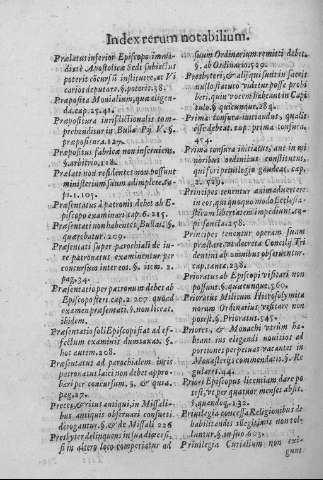 Index rerum notabilium.
Prælatus inferior Episcopo immediate Apostolicæ Sedi subiectus
poterit cōcursū instituere, at Vicarios deputare, §. poterit. 38.
Præposita Monialium, qua eligenda. cap. 25. 41.
Præpositura iurisdictionalis comprehenditur in Bulla Pij V. §.
præpositura. 124.
Præpositus fabricæ non inferens.
§. arbitrio. 118.
Prælati non residentes non possunt
ministerium suum adimplere.
1. 105.
Præsentatus à patronis debet ab Episcopo examinari cap. 6. 215.
Præsentati non habentes, Bullas. §.
quærebatur. 209.
Præsentati super parochiali de iure patronatus examinentur per
concursum inter eos. §.
pag. 34.
Præsentatio per patronum debet ab
Episcopo fieri cap. 2 207. quoad
examen præsentati. §. non licear.
ibidem.
Præsentatio soli Episcopo fiat ad effectum examinis dumtaxat. §.
hoc autem. 208.
Præsentatus ad parochialem iuris
patronatus laici non debet approbari per concursum. §. & quia.
pag. 27.
Preces, & ritus antiqui, in Missalibus antiquis obseruari consueti.
dirogantur. §. & de Missali 226
Presbyter delinquens in sua diœcesi,
si in alieno loco comperiatur ad
suum Ordinarium remitti debet.
§. ab Ordinario. 529.
Presbyteri, & alij qui sunt in sacris
nullo statuto vetantur posse prohiberi, quin vocem habeant in Capitulo. §. quicumque. 284.
Prima tonsura initiandus, qualis
esse debeat. cap. prima tonsura.
454.
Prima tonsura initiatus, aut in minoribus ordinibus constitutis,
quis fori priuilegio gaudeat. cap.
529.
Principes tenentur animaduertere
in eos, qui quoquo modo Ecclesiasticam libertatem impediunt.
258.
Principes tenentur operam suam
præstare, vt decreta Concilij Tridentini ab omnibus obseruentur.
cap. tanta. 238.
Prioratus ab Episcopis visitari non
possunt. §. quacunque. 360.
Prioratus Militum Hierosolymitanorum Ordinarius visitare non
potest. §. Prioratus. 345.
Priores, & Monachi vtrum habeant ius eligendi nouitios ad
portiones perpetuas vacantes in
Monasterijs commendatis. §. Regulares. 44.
Priori Episcopus licentiam dare potest, vt per quatuor menses absit.
§. quandoq. 132.
Priuilegia concessa Religionibus de
habilitandis illegitimis non tolluntur. §. in suo 603.
Priuilegia Curialium non exigunt